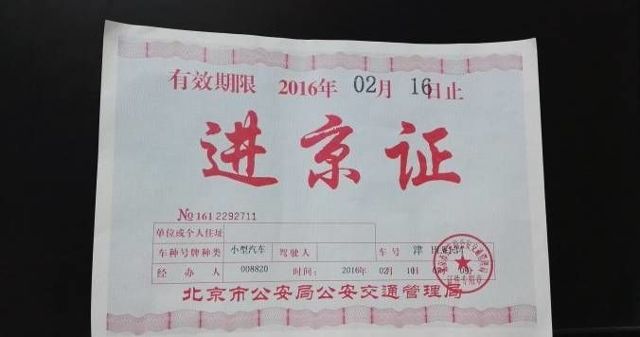 有效期限 2016年 02月 16日止
进京证
No 161 2292711
单位或个人住址
车种号牌种类 小型汽车 驾驶人 车号 津
经办人 008820 时间: 2016年 02月 10日
北京市公安局公安交通管理局